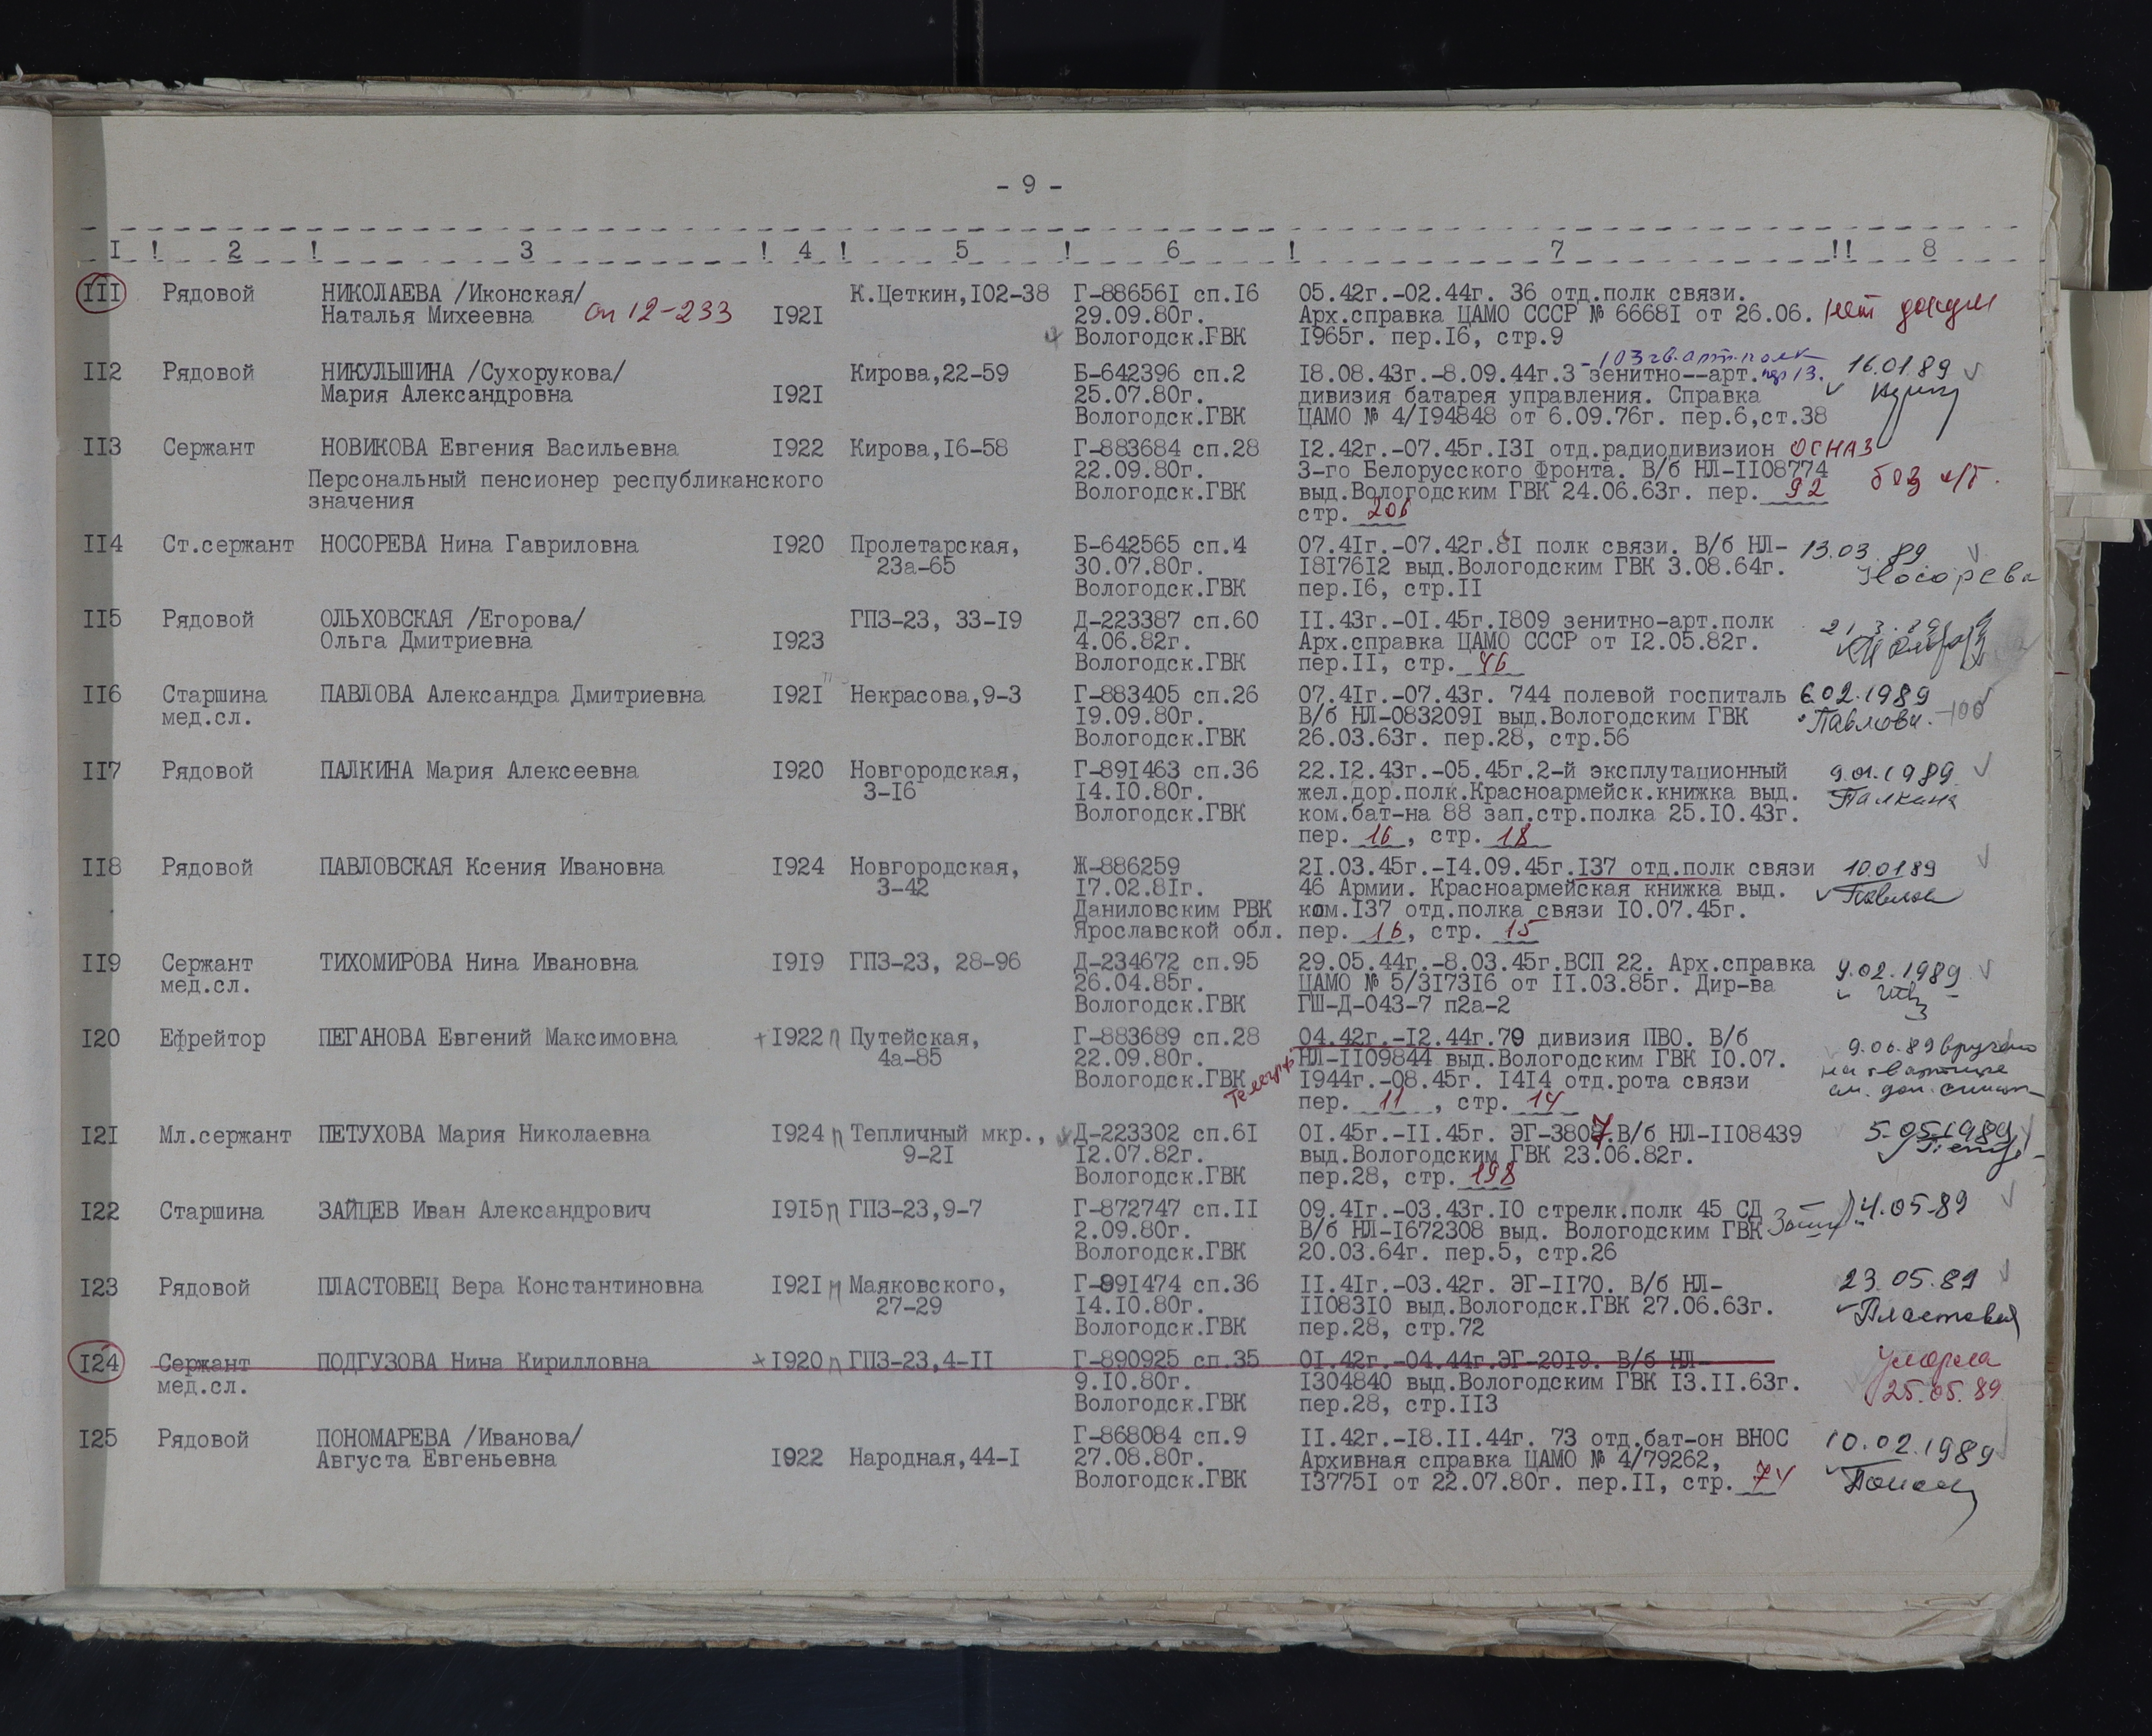 - 9 -
I ! 2 ! 3 ! 4 ! 5 ! 6 ! 7 !! 8
III Рядовой НИКОЛАЕВА /Иконская/ К.Цеткин,I02-38 Г-88656I сп.I6 05.42г.-02.44г. 36 отд.полк связи.
Наталья Михеевна оп 12-233 I92I 29.09.80г. Арх.справка ЦАМО СССР № 6668I от 26.06. нет
Вологодск.ГВК I965г. пер.I6, стр.9
- 103 гв.арт.полк
II2 Рядовой НИКУЛЬШИНА /Сухорукова/ Кирова,22-59 Б-642396 сп.2 I8.08.43г.-8.09.44г.3 зенитно--арт. 16.01.89
Мария Александровна I92I 25.07.80г. дивизия батарея управления. Справка
Вологодск.ГВК ЦАМО № 4/I94848 от 6.09.76г. пер.6,ст.38
II3 Сержант НОВИКОВА Евгения Васильевна I922 Кирова,I6-58 Г-883684 сп.28 I2.42г.-07.45г.I3I отд.радиодивизион ОСНАЗ
Персональный пенсионер республиканского 22.09.80г. 3-го Белорусского Фронта. В/б НЛ-II08774
значения Вологодск.ГВК выд.Вологодским ГВК 24.06.63г. пер. 92 без
стр. 206
II4 Ст.сержант НОСОРЕВА Нина Гавриловна I920 Пролетарская, Б-642565 сп.4 07.4Iг.-07.42г.8I полк связи. В/б НЛ- 13.03.89
23а-65 30.07.80г. I8I76I2 выд.Вологодским ГВК 3.08.64г. Носорева
Вологодск.ГВК пер.I6, стр.II
II5 Рядовой ОЛЬХОВСКАЯ /Егорова/ ГПЗ-23, 33-I9 Д-223387 сп.60 II.43г.-0I.45г.I809 зенитно-арт.полк
Ольга Дмитриевна I923 4.06.82г. Арх.справка ЦАМО СССР от I2.05.82г.
Вологодск.ГВК пер.II, стр. 46
II6 Старшина ПАВЛОВА Александра Дмитриевна I92I Некрасова,9-3 Г-883405 сп.26 07.4Iг.-07.43г. 744 полевой госпиталь 6.02.1989
мед.сл. I9.09.80г. В/б НЛ-083209I выд.Вологодским ГВК Павлова -100
Вологодск.ГВК 26.03.63г. пер.28, стр.56
II7 Рядовой ПАЛКИНА Мария Алексеевна I920 Новгородская, Г-89I463 сп.36 22.I2.43г.-05.45г.2-й эксплутационный 9.01.1989
3-I6 I4.I0.80г. жел.дор.полк.Красноармейск.книжка выд. Палкина
Вологодск.ГВК ком.бат-на 88 зап.стр.полка 25.I0.43г.
пер. 16, стр. 18
II8 Рядовой ПАВЛОВСКАЯ Ксения Ивановна I924 Новгородская, Ж-886259 2I.03.45г.-I4.09.45г.I37 отд.полк связи 10.01.89
3-42 I7.02.8Iг. 46 Армии. Красноармейская книжка выд.
Даниловским РВК ком.I37 отд.полка связи I0.07.45г.
Ярославской обл. пер. 16, стр. 15
II9 Сержант ТИХОМИРОВА Нина Ивановна I9I9 ГПЗ-23, 28-96 Д-234672 сп.95 29.05.44г.-8.03.45г.ВСП 22. Арх.справка 9.02.1989
мед.сл. 26.04.85г. ЦАМО № 5/3I73I6 от II.03.85г. Дир-ва
Вологодск.ГВК ГШ-Д-043-7 п2а-2
I20 Ефрейтор ПЕГАНОВА Евгений Максимовна +I922 п Путейская, Г-883689 сп.28 04.42г.-I2.44г.79 дивизия ПВО. В/б 9.06.89 вручено
4а-85 22.09.80г. НЛ-II09844 выд.Вологодским ГВК I0.07. на квартире
Вологодск.ГВК I944г.-08.45г. I4I4 отд.рота связи см. доп. список
пер. 11, стр. 14
I2I Мл.сержант ПЕТУХОВА Мария Николаевна I924 п Тепличный мкр., Д-223302 сп.6I 0I.45г.-II.45г. ЭГ-3807.В/б НЛ-II08439 5.05.1989
9-2I I2.07.82г. выд.Вологодским ГВК 23.06.82г.
Вологодск.ГВК пер.28, стр. 198
I22 Старшина ЗАЙЦЕВ Иван Александрович I9I5 п ГПЗ-23,9-7 Г-872747 сп.II 09.4Iг.-03.43г.I0 стрелк.полк 45 СД 4.05.89
2.09.80г. В/б НЛ-I672308 выд. Вологодским ГВК
Вологодск.ГВК 20.03.64г. пер.5, стр.26
I23 Рядовой ПЛАСТОВЕЦ Вера Константиновна I92I п Маяковского, Г-891474 сп.36 II.4Iг.-03.42г. ЭГ-II70. В/б НЛ- 23.05.89
27-29 I4.I0.80г. II083I0 выд.Вологодск.ГВК 27.06.63г.
Вологодск.ГВК пер.28, стр.72
I24 Сержант ПОДГУЗОВА Нина Кирилловна +I920 п ГПЗ-23,4-II Г-890925 сп.35 0I.42г.-04.44г.ЭГ-20I9. В/б НЛ- умерла
мед.сл. 9.I0.80г. I304840 выд.Вологодским ГВК I3.II.63г. 25.05.89
Вологодск.ГВК пер.28, стр.II3
I25 Рядовой ПОНОМАРЕВА /Иванова/ Г-868084 сп.9 II.42г.-I8.II.44г. 73 отд.бат-он ВНОС 10.02.1989
Августа Евгеньевна I922 Народная,44-I 27.08.80г. Архивная справка ЦАМО № 4/79262,
Вологодск.ГВК I3775I от 22.07.80г. пер.II, стр. 74